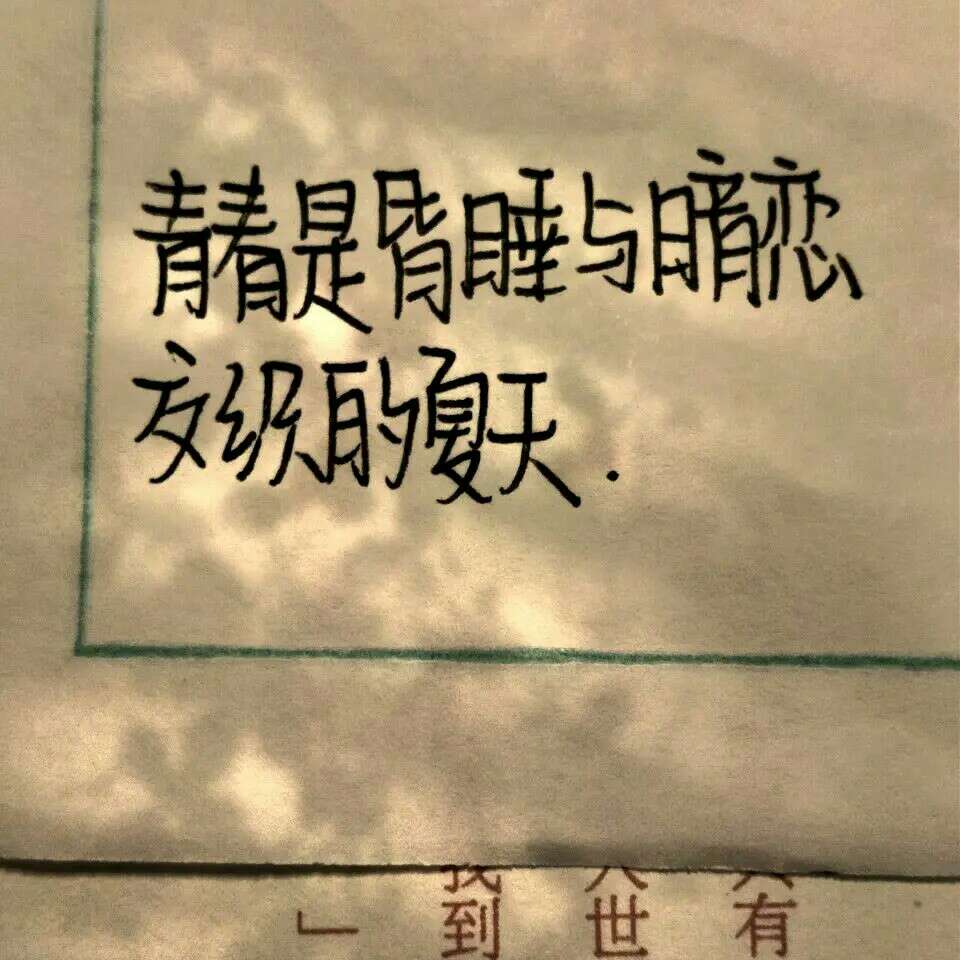 青春是昏睡与暗恋
交织的夏天.
到世有
」